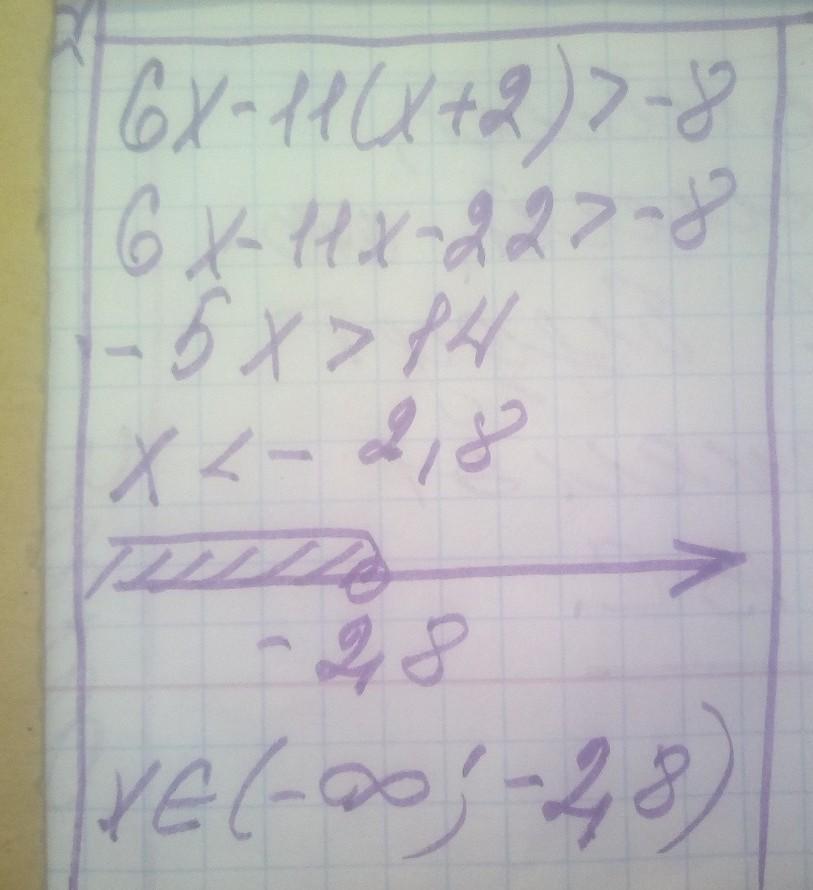 6x-11(x+2)>-8
6x-11x-22>-8
-5x>14
x<-2,8
-2,8
x∈(-∞;-2,8)